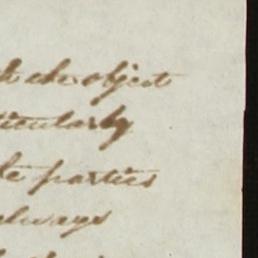 the object
ticularly
parties
always